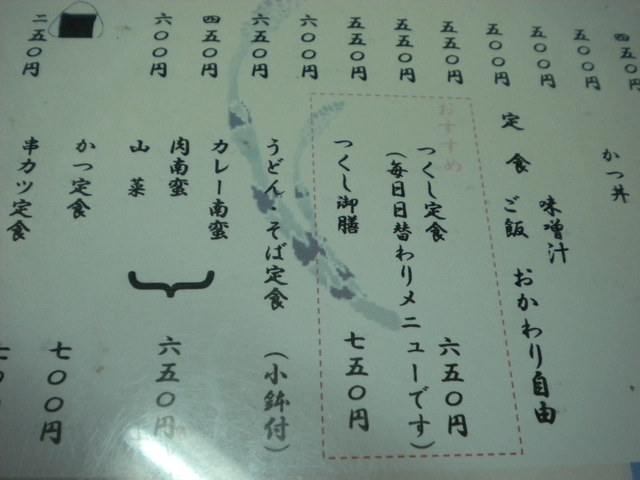 四五〇円
五五〇円
五〇〇円
五〇〇円
五五〇円
五五〇円
五五〇円
六〇〇円
六五〇円
四五〇円
六〇〇円
二五〇円
かつ丼
定食
味噌汁
ご飯
おかわり自由
おすすめ
つくし定食 六五〇円
(毎日日替わりメニューです)
つくし御膳 七五〇円
うどん・そば定食 (小鉢付)
カレー南蛮
肉南蛮
山菜
六五〇円
かつ定食 七〇〇円
串カツ定食